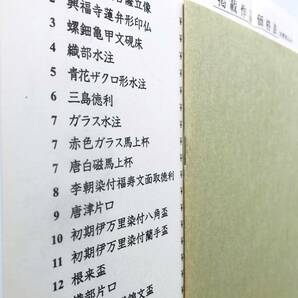 2 興福寺蓮弁形印仏
3 螺鈿亀甲文硯床
4 織部水注
5 青花ザクロ形水注
6 三島徳利
7 ガラス水注
7 赤色ガラス馬上杯
7 唐白磁馬上杯
8 李朝染付福寿文面取徳利
9 唐津片口
10 初期伊万里染付八角盃
11 初期伊万里染付蘭手盃
12 根来盃
掲載作 価格表